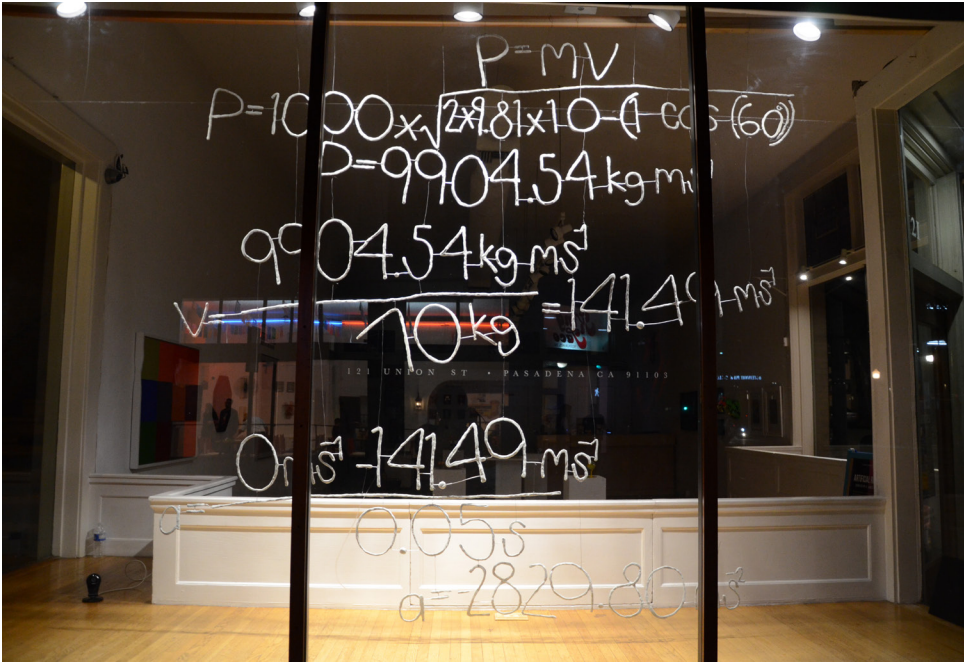 P=MV
P=1000×√2×9.81×10-(1 cos (60°))
P=9904.54 kg m
9904.54 kg ms⁻¹
V= =141.49 ms⁻¹
10 kg
121 UNION ST • PASADENA CA 91103
0ms⁻¹ -141.49 ms⁻¹
a
0.05s
a=-2829.80 s⁻²